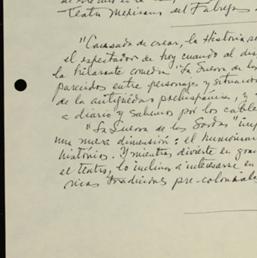 teatro Mexicano del Fábregas
"Cansada de crear, la Historia
el espectador de hoy cuando al
la hilarante comedia "La Guerra de las
parecidos entre personajes y situaciones
de la antigüedad prehispánica, y
a diario y sabemos por los cables
"La Guerra de las Gordas"
una nueva dimensión: el humorismo
histórico. Y mientras divierte en
el teatro, lo inclina a interesarse en
ricas tradiciones pre-coloniales